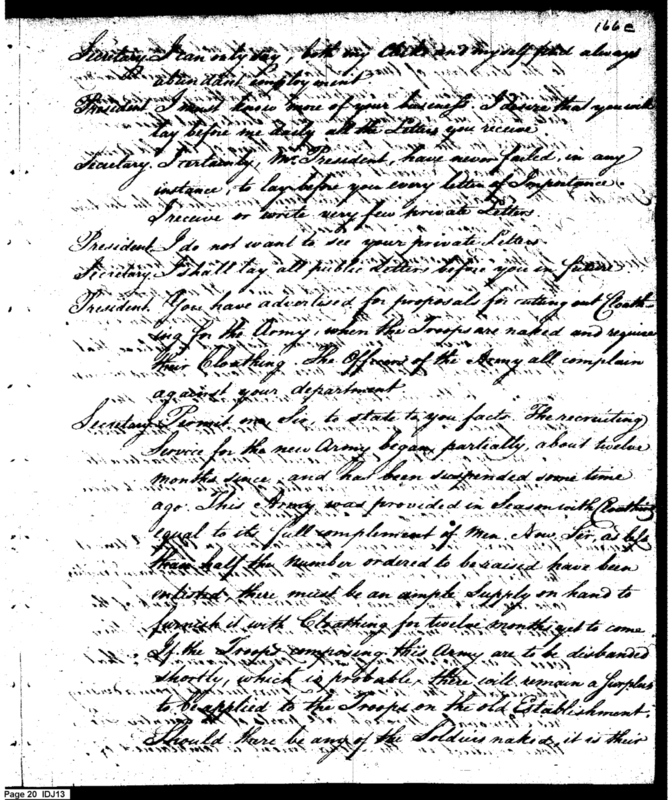 166c
Secretary. I can only say, both my Clerks and myself find always
abundant employment
President I must know more of your business. I desire that you will
lay before me daily all the Letters you receive
Secretary. I certainly, Mr. President, have never failed, in any
instance, to lay before you every letter of Importance.
I receive or write very few private Letters
President. I do not want to see your private Letters.
Secretary. I shall lay all public Letters before you in future
President. You have advertised for proposals for cutting out Cloath-
ing for the Army, when the Troops are naked and require
their Cloathing. The Officers of the Army all complain
against your department
Secretary Permit me, Sir, to state to you facts. The recruiting
Service for the new Army began, partially, about twelve
months since, and has been suspended some time
ago. This Army was provided in Season with Cloathing
equal to its full complement of men. Now, Sir, as less
than half the number ordered to be raised have been
inlisted, there must be an ample Supply on hand to
furnish it with Cloathing for twelve months yet to come
If the Troops composing this Army are to be disbanded
shortly, which is probable, there will remain a Surplus
to be applied to the Troops on the old Establishment.
Should there be any of the Soldiers naked, it is their
Page 20 IDJ13